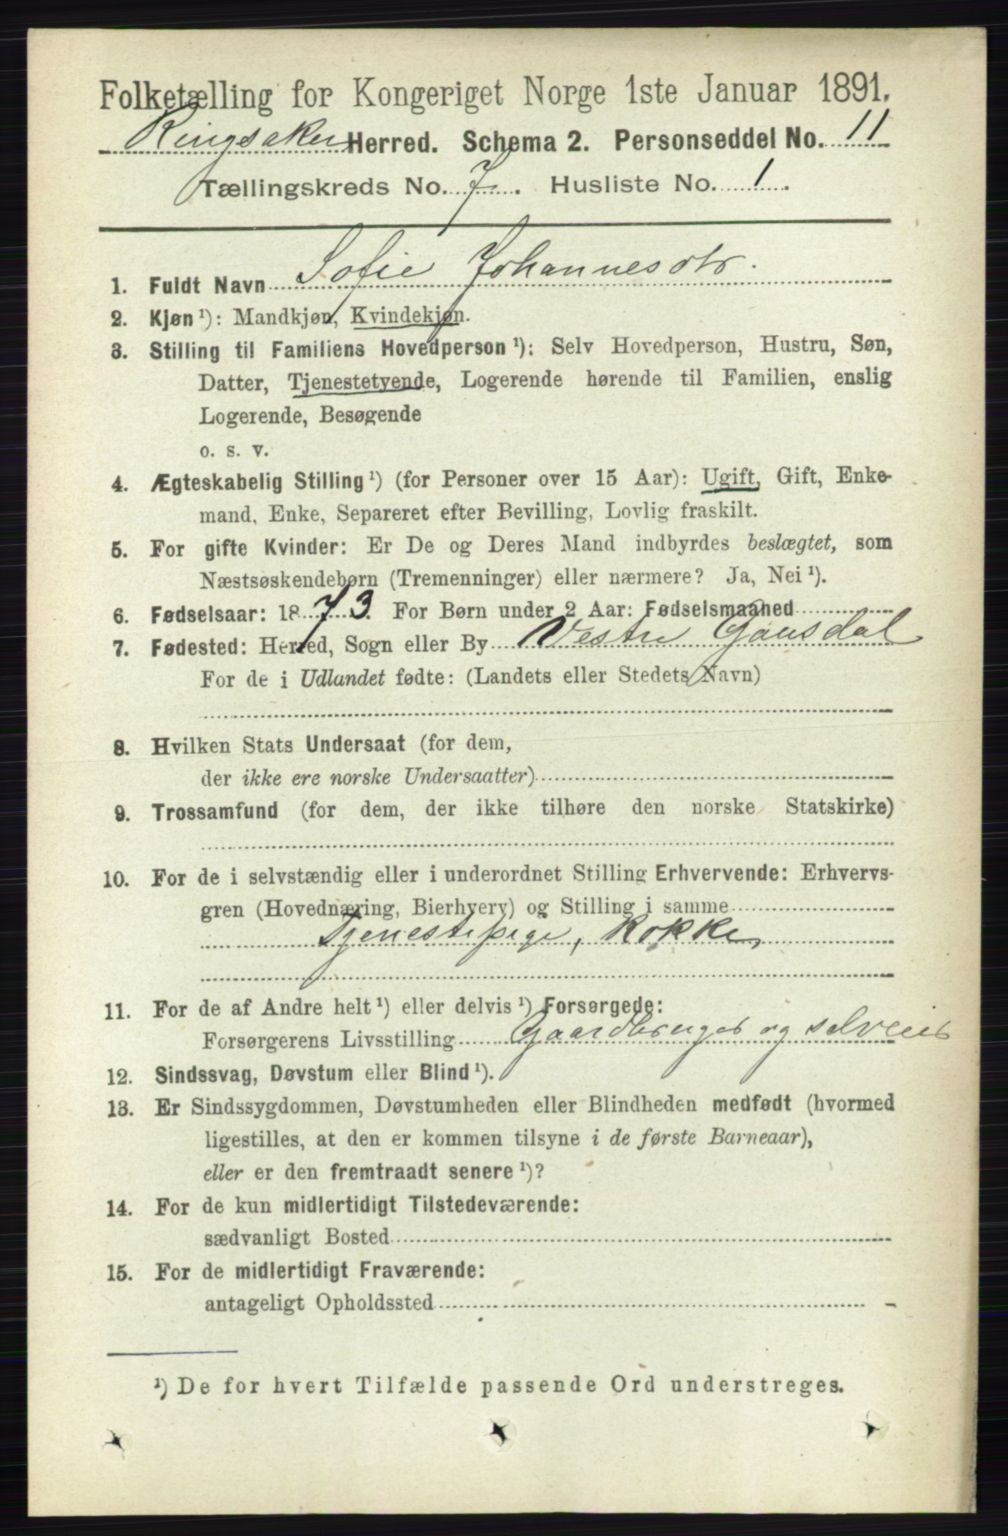 Folketælling for Kongeriget Norge 1ste Januar 1891.
Ringsaker Herred. Schema 2. Personseddel No. 11
Tællingskreds No. 7. Husliste No. 1.
1. Fuldt Navn Sofie Johannesdtr.
2. Kjøn ¹): Mandkjøn, Kvindekjøn.
3. Stilling til Familiens Hovedperson ¹): Selv Hovedperson, Hustru, Søn,
Datter, Tjenestetyende, Logerende hørende til Familien, enslig
Logerende, Besøgende
o. s. v.
4. Ægteskabelig Stilling ¹) (for Personer over 15 Aar): Ugift, Gift, Enke-
mand, Enke, Separeret efter Bevilling, Lovlig fraskilt.
5. For gifte Kvinder: Er De og Deres Mand indbyrdes beslægtet, som
Næstsøskendebørn (Tremenninger) eller nærmere? Ja, Nei ¹).
6. Fødselsaar: 1873. For Børn under 2 Aar: Fødselsmaaned
7. Fødested: Herred, Sogn eller By Vestre Gausdal
For de i Udlandet fødte: (Landets eller Stedets Navn)
8. Hvilken Stats Undersaat (for dem,
der ikke ere norske Undersaatter)
9. Trossamfund (for dem, der ikke tilhøre den norske Statskirke)
10. For de i selvstændig eller i underordnet Stilling Erhvervende: Erhvervs-
gren (Hovednæring, Bierhverv) og Stilling i samme
Tjenestepige, Kokke
11. For de af Andre helt ¹) eller delvis ¹) Forsørgede:
Forsørgerens Livsstilling Gaardbruger og selveier
12. Sindssvag, Døvstum eller Blind ¹).
13. Er Sindssygdommen, Døvstumheden eller Blindheden medfødt (hvormed
ligestilles, at den er kommen tilsyne i de første Barneaar),
eller er den fremtraadt senere ¹)?
14. For de kun midlertidigt Tilstedeværende:
sædvanligt Bosted
15. For de midlertidigt Fraværende:
antageligt Opholdssted
¹) De for hvert Tilfælde passende Ord understreges.